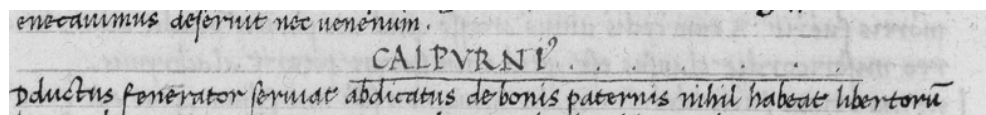 enecauimus deseruit nec uenenum.
CALPVRNIꝰ
Dductus fenerator seruiat abdicatus de bonis paternis nihil habeat libertorū